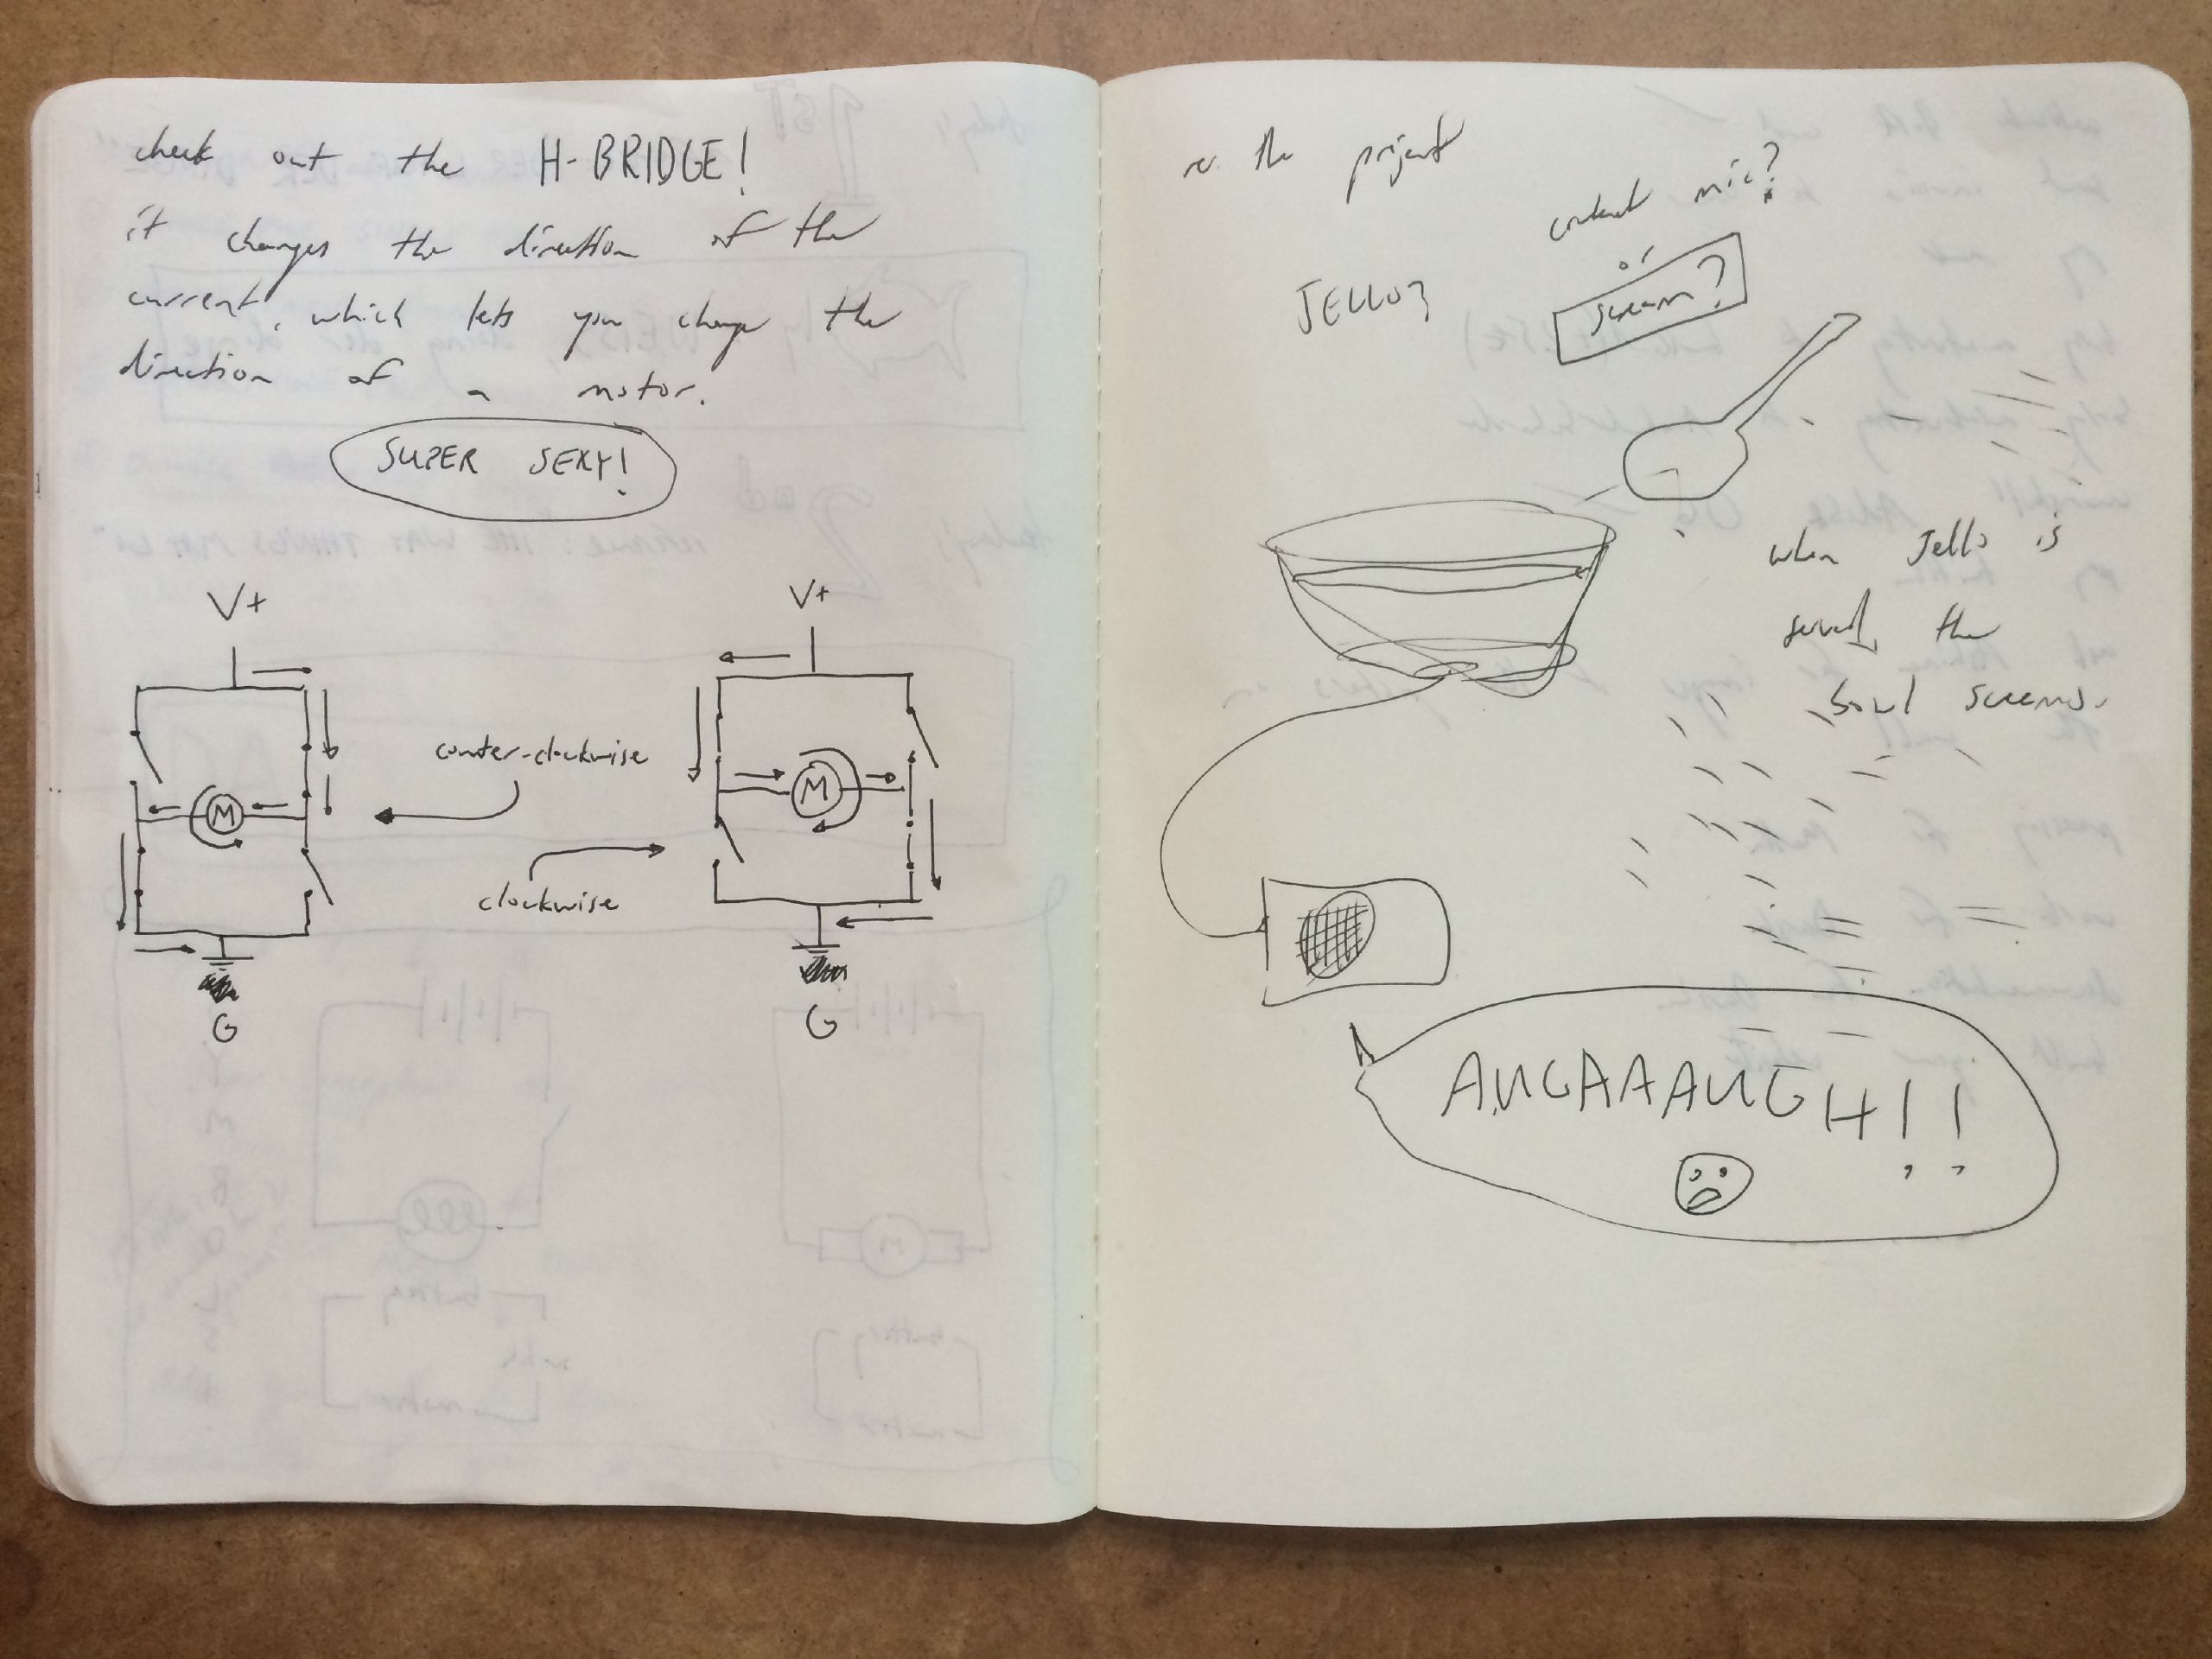 check out the H-BRIDGE!
it changes the direction of the
current, which lets you change the
direction of a motor.
SUPER SEXY!
V+
V+
counter-clockwise
M
M
clockwise
G
G
re: the project
contact mic?
or
JELLO?
scream?
when Jello is
served, the
bowl screams.
AUGAAAUGH!!